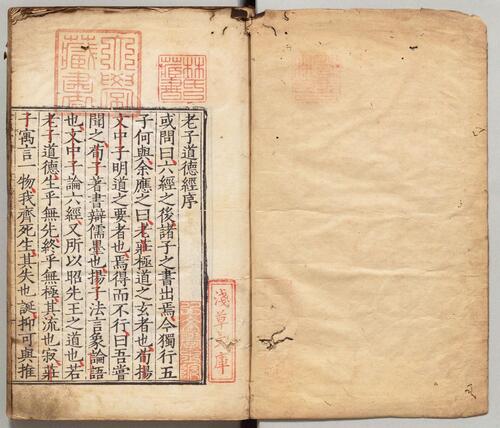 老子道德經序
或問曰六經之後諸子之書出焉今獨行五
子何與余應之曰老莊極道之玄者也荀揚
文中子明道之要者也焉得而不行曰吾嘗
聞之荀子著書辯儒墨也揚子法言象論語
也文中子論六經又所以昭先王之道也若
老子道德生乎無先終乎無極其流也寂莊
子寓言一物我齊死生其失也誕抑可與推
淺草文庫
林氏
藏書